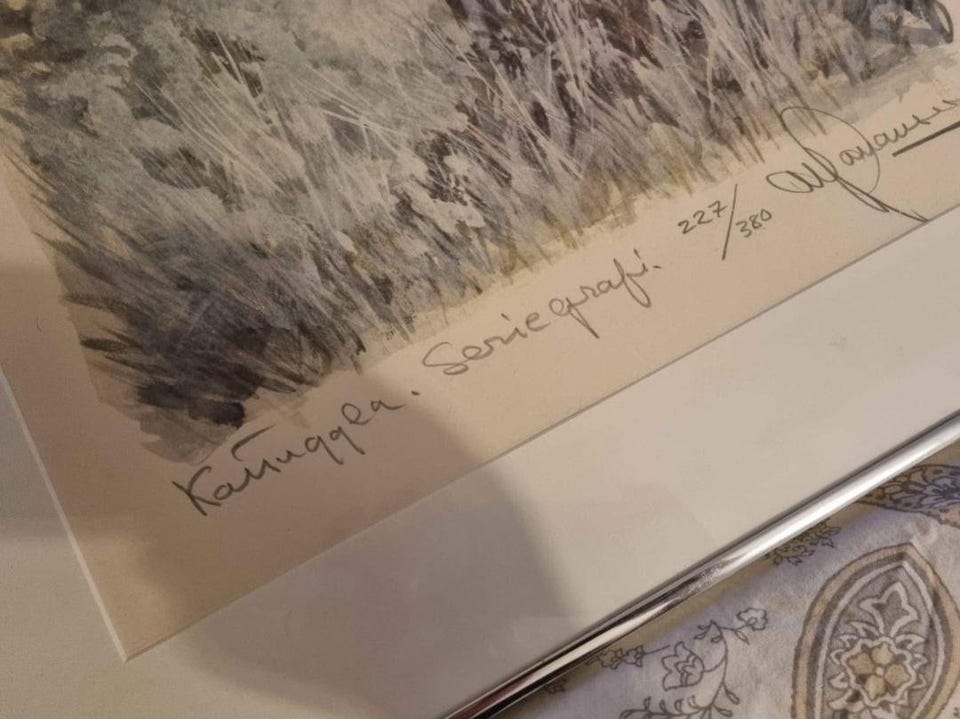 Kattuggla. Seriegrafi. 227/380